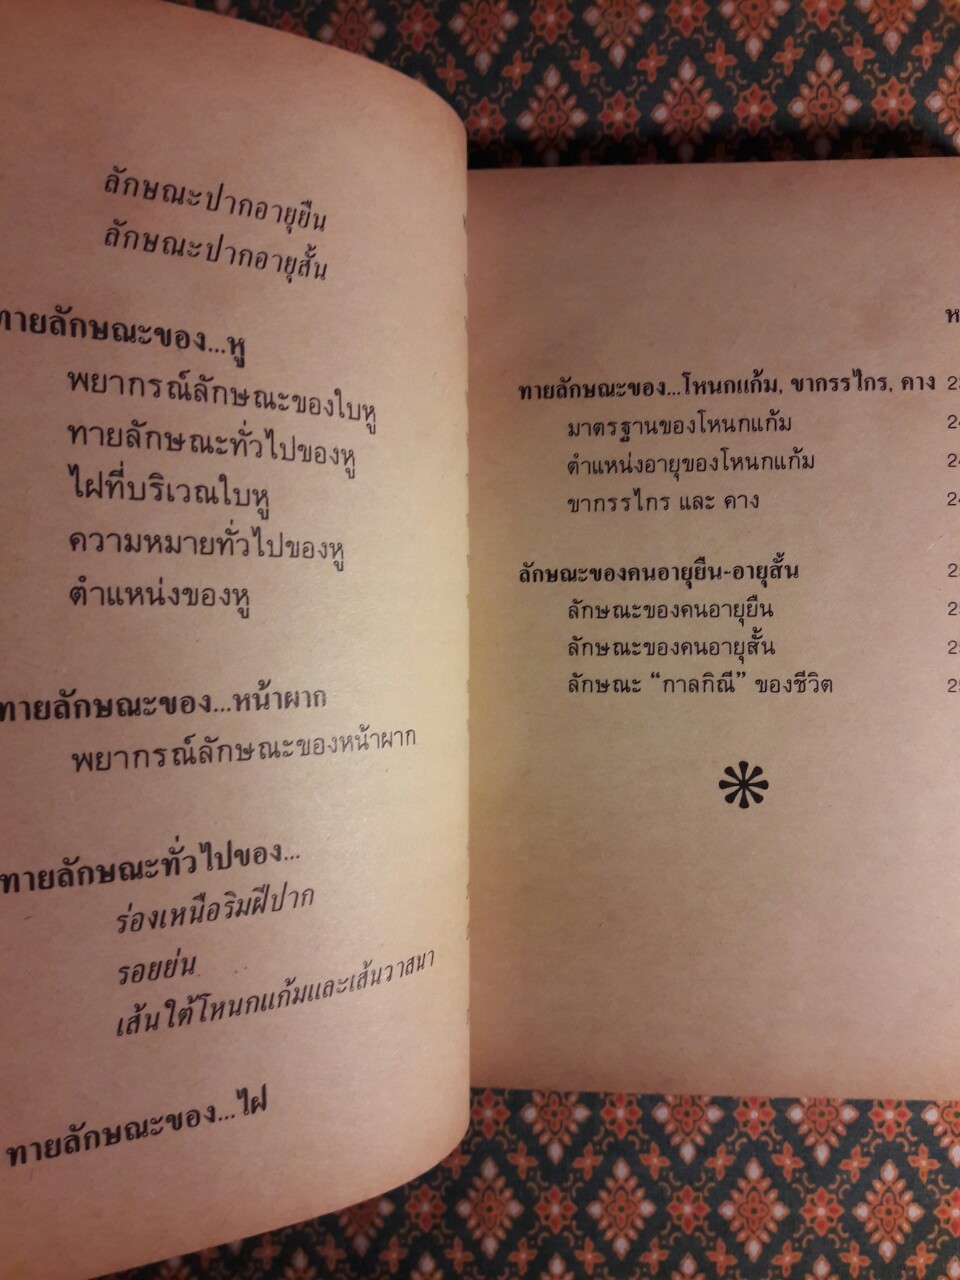 ลักษณะปากอายุยืน
ลักษณะปากอายุสั้น
ทายลักษณะของ...หู
พยากรณ์ลักษณะของใบหู
ทายลักษณะทั่วไปของหู
ไฝที่บริเวณใบหู
ความหมายทั่วไปของหู
ตำแหน่งของหู
ทายลักษณะของ...หน้าผาก
พยากรณ์ลักษณะของหน้าผาก
ทายลักษณะทั่วไปของ...
ร่องเหนือริมฝีปาก
รอยย่น
เส้นใต้โหนกแก้มและเส้นวาสนา
ทายลักษณะของ...ไฝ
ทายลักษณะของ...โหนกแก้ม, ขากรรไกร, คาง
มาตรฐานของโหนกแก้ม
ตำแหน่งอายุของโหนกแก้ม
ขากรรไกร และ คาง
ลักษณะของคนอายุยืน-อายุสั้น
ลักษณะของคนอายุยืน
ลักษณะของคนอายุสั้น
ลักษณะ “กาลกิณี” ของชีวิต